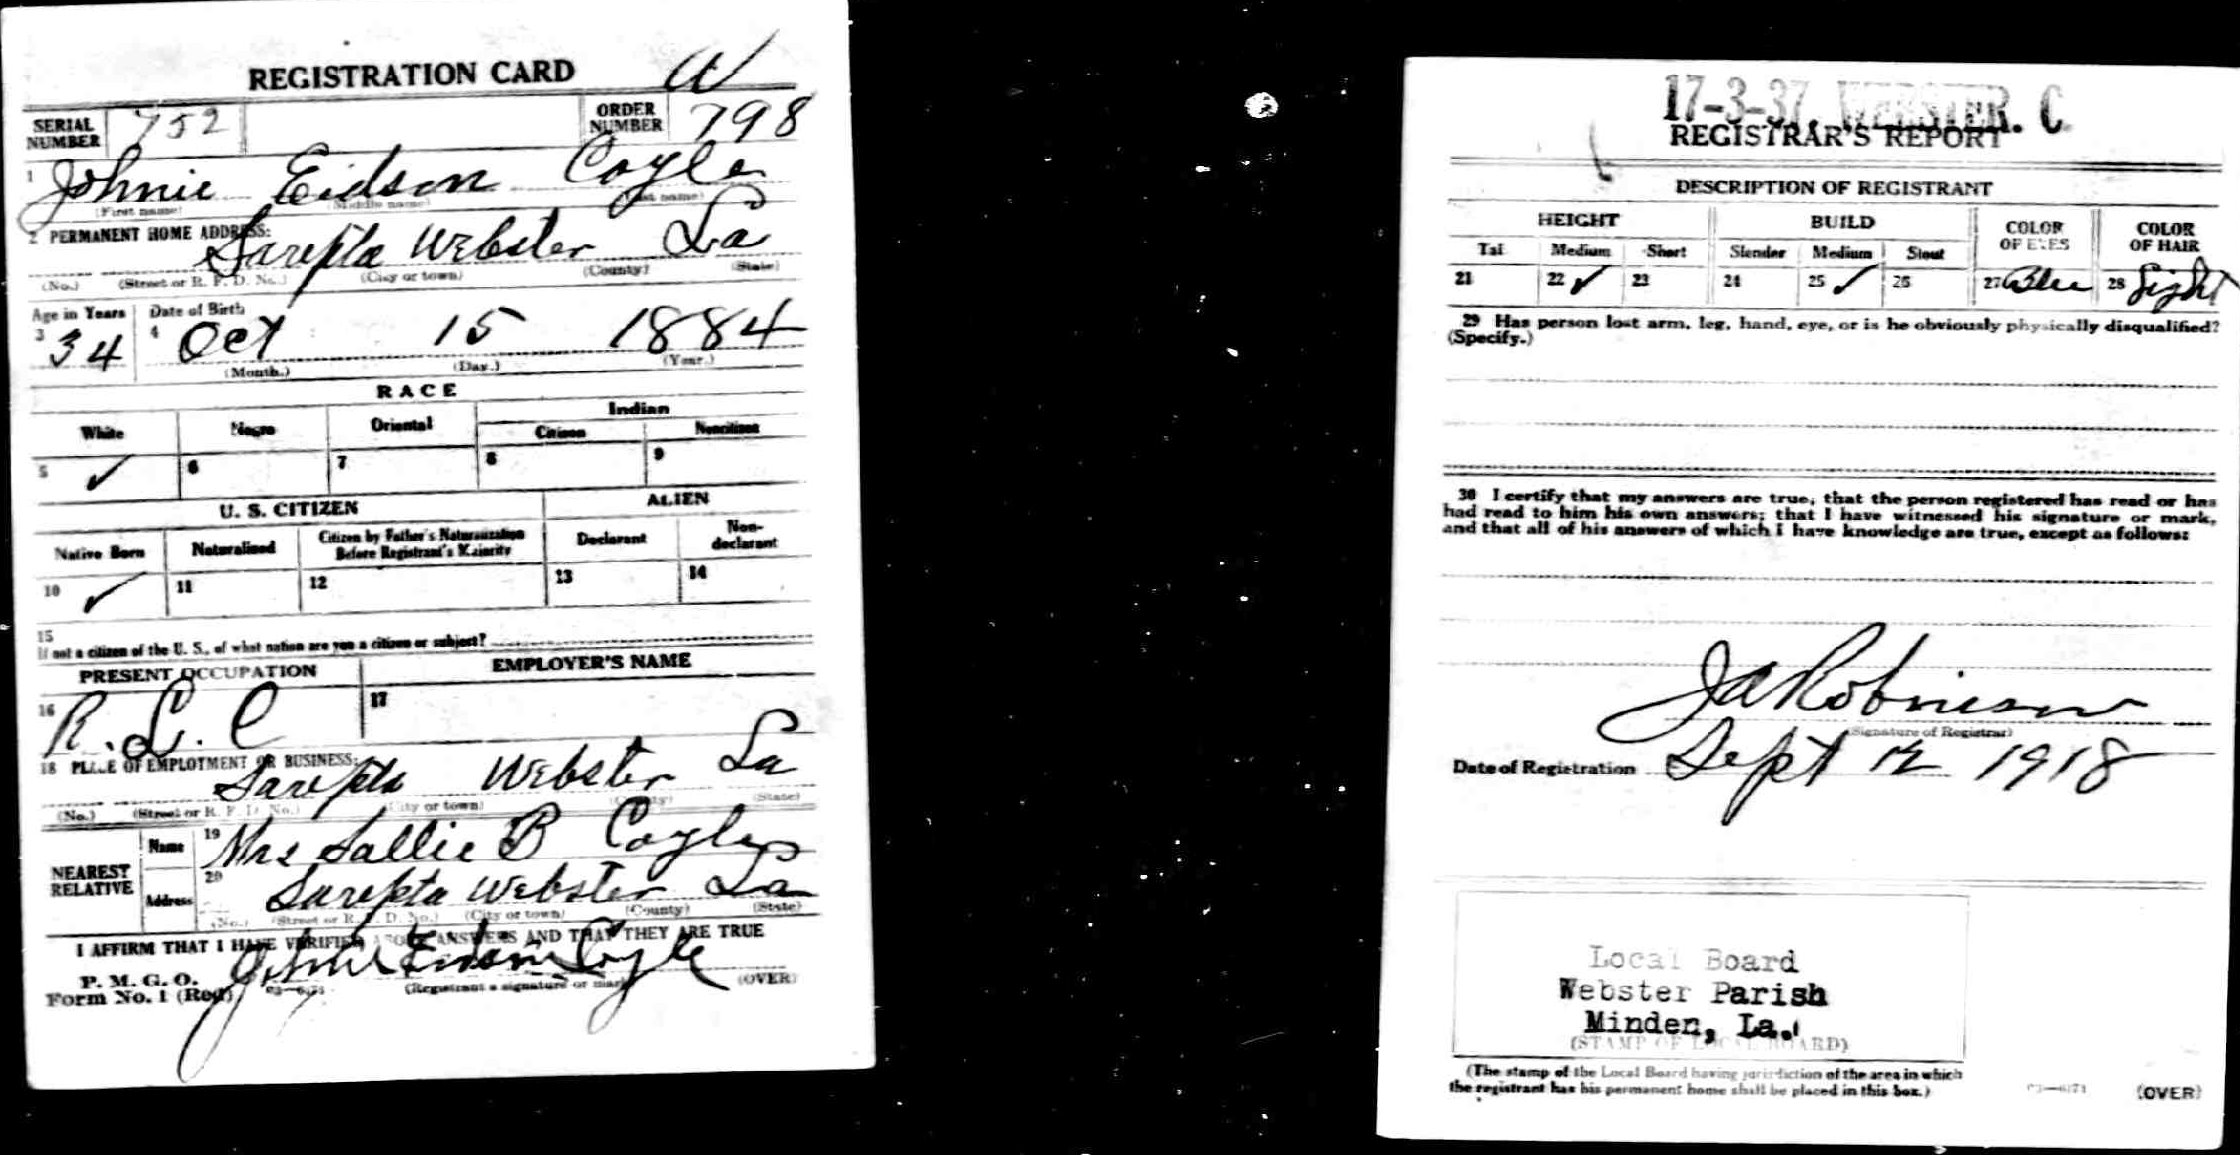 REGISTRATION CARD
SERIAL NUMBER 752
ORDER NUMBER 798
1 Johnie Eidson Coyle
(First name) (Middle name) (Last name)
2 PERMANENT HOME ADDRESS:
Sarepta Webster La
(No.) (Street or R. F. D. No.) (City or town) (County) (State)
Age in Years Date of Birth
3 34 4 Oct 15 1884
(Month.) (Day.) (Year.)
RACE
White Negro Oriental Indian
Citizen Noncitizen
5 ✓ 6 7 8 9
U. S. CITIZEN ALIEN
Native Born Naturalized Citizen by Father's Naturalization Before Registrant's Majority Declarant Non-declarant
10 ✓ 11 12 13 14
15
If not a citizen of the U. S., of what nation are you a citizen or subject?
PRESENT OCCUPATION EMPLOYER'S NAME
16 R. L. C 17
18 PLACE OF EMPLOYMENT OR BUSINESS:
Sarepta Webster La
(No.) (Street or R. F. D. No.) (City or town) (County) (State)
NEAREST RELATIVE
Name 19 Mrs Sallie B Coyle
Address 20 Sarepta Webster La
(No.) (Street or R. F. D. No.) (City or town) (County) (State)
I AFFIRM THAT I HAVE VERIFIED ABOVE ANSWERS AND THAT THEY ARE TRUE
P. M. G. O.
Form No. 1 (Red) Johnie Eidson Coyle
(Registrant's signature or mark) (OVER)
17-3-37. WEBSTER. C
REGISTRAR'S REPORT
DESCRIPTION OF REGISTRANT
HEIGHT BUILD COLOR OF EYES COLOR OF HAIR
Tall Medium Short Slender Medium Stout
21 22 ✓ 23 24 25 ✓ 26 27 Blue 28 Light
29 Has person lost arm, leg, hand, eye, or is he obviously physically disqualified?
(Specify.)
30 I certify that my answers are true; that the person registered has read or has
had read to him his own answers; that I have witnessed his signature or mark,
and that all of his answers of which I have knowledge are true, except as follows:
J A Robinson
(Signature of Registrar)
Date of Registration Sept 12 1918
Local Board
Webster Parish
Minden, La.
(STAMP OF LOCAL BOARD)
(The stamp of the Local Board having jurisdiction of the area in which
the registrant has his permanent home shall be placed in this box.)
(OVER)